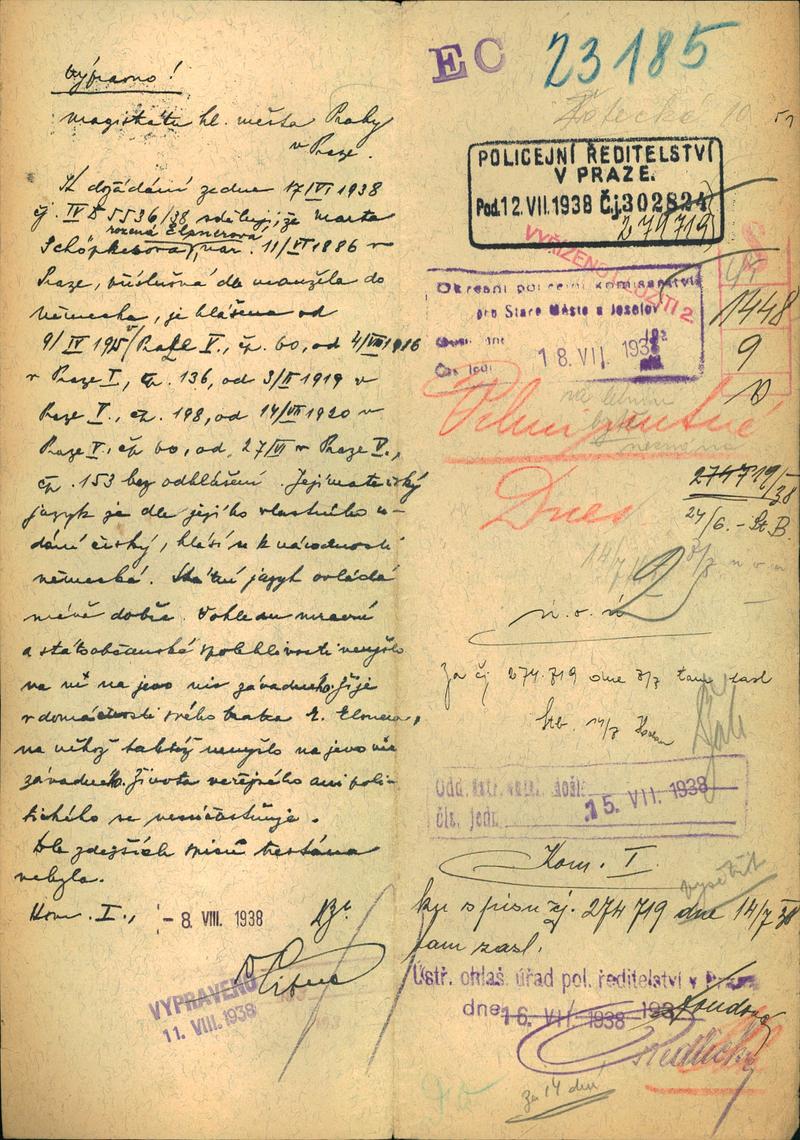 výpravno!
magistrátu hl. města Prahy
v Praze.
K dožádání ze dne 17/VI 1938
čj. IV 5536/38 sděluji, že Marta
rozená Elsnerová,
Schöpkesová, nar. 11/VI 1886 v
Praze, příslušná dle manžela do
Německa, je hlášena od
9/IV 1915 v Praze V., čp. 60, od 4/VIII 1916
v Praze I, čp. 136, od 3/II 1919 v
Praze V., čp. 198, od 14/VII 1920 v
Praze V, čp 60, od 27/VI v Praze V.,
čp. 153 bez odhlášení. Její mateřský
jazyk je dle jejího vlastního ú-
dání český, hlásí se k národnosti
německé. Státní jazyk ovládá
méně dobře. Vohledu mravní
a státoobčanské spolehlivosti nevyšlo
na ní na jevo nic závadného. Žije
v domácnosti svého bratra E. Elsnera,
na něhož taktéž nevyšlo na jevo nic
závadného. Života veřejného ani poli-
tického se nesúčastňuje.
Dle zdejších spisů trestána
nebyla.
Kom. I.,
- 8. VIII. 1938
VYPRAVENO
11. VIII. 1938
EC 23185
10
POLICEJNÍ ŘEDITELSTVÍ
V PRAZE.
Pod. 12. VII. 1938 Čj. 302824
279719
VYŘÍZENO
Okresní policejní komisařství
pro Staré Město a Josefov
18. VII. 1938
Čís. jedn.
1448
9
Velmi nutné
Dnes
274719/38
24/6. - St B.
14/7
2
Za čj 274.719 dne 8/7 tam zasl
14/7
došlo
15. VII. 1938
čís. jedn.
Kom. I.
ku spisu čj. 274719 dne 14/7 38
tam zasl.
Ústř. ohlaš. úřad pol. ředitelství v Praze
dne 16. VII. 1938
za 14 dní